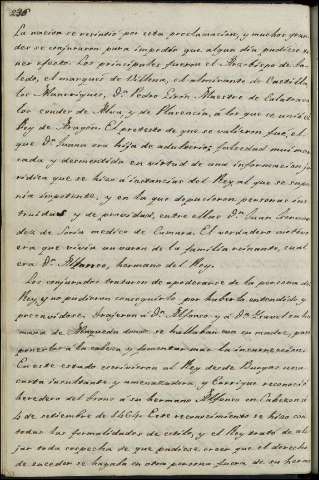 236
La nacion se resintió por esta proclamacion, y muchos gran-
des se conjuraron para impedir que algun dia pudiese te-
ner efecto. Los principales fueron el Arzobispo de To-
ledo, el marqués de Villena, el almirante de Castilla
los Manrriques, Dn. Pedro Giron Maestre de Calatrava
los Condes de Alva, y de Plasencia, á los que se unió el
Rey de Aragón. El pretesto de que se valieron fue, el
que Da. Juana era hija de adulterio; falsedad mui mar-
cada y desmentida en virtud de una informacion ju-
ridica que se hizo á instancias del Rey al que se supo-
nia impotente, y en la que depusieron personas ins-
truidas y de probidad, entre ellas Dn. Juan Fernan-
dez de Soria medico de Camara. El verdadero motivo
era que vivia un varon de la familia reinante, cual
era Dn. Alfonso, hermano del Rey.
Los conjurados trataron de apoderarse de la persona del
Rey, y no pudieron conseguirlo por haberlo entendido y
precavidose. Trajeron á Dn. Alfonso y á Da. Isavel su her-
mana de Maqueda donde se hallaban con su madre, para
ponerlos á la cabeza y fomentar mas la insurreccion.
En este estado escrivieron al Rey desde Burgos una
carta insultante, y amenazadora, y Enrrique reconoció
heredero del trono á su hermano Alfonso en Cabezon á
4 de setiembre de 1464. Este reconocimiento se hizo con
todas las formalidades de estilo, y el Rey trató de ale-
jar toda sospecha de que pudiese creer que el derecho
de suceder se hayaba en otra persona fuera de su herma